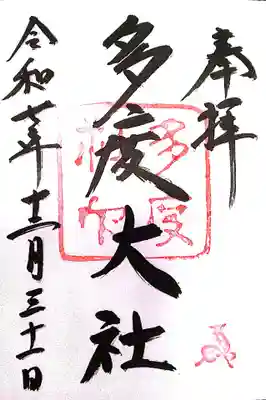 奉拝
多度大社
令和七年十二月三十一日